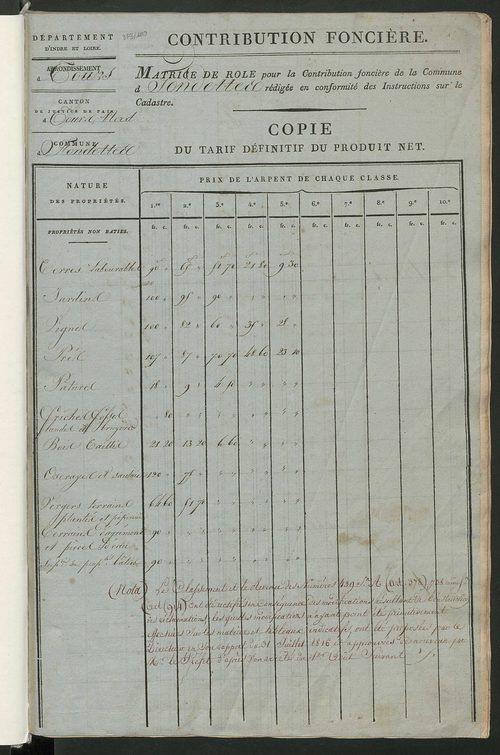 DÉPARTEMENT
D'INDRE ET LOIRE.
ARRONDISSEMENT
à Tours
CANTON
DE JUSTICE DE PAIX
à Tours Nord
COMMUNE
à Fondettes
CONTRIBUTION FONCIÈRE.
MATRICE DE ROLE pour la Contribution foncière de la Commune
d Fondettes rédigée en conformité des Instructions sur le
Cadastre.
COPIE
DU TARIF DÉFINITIF DU PRODUIT NET.
NATURE
DES PROPRIÉTÉS.
PRIX DE L'ARPENT DE CHAQUE CLASSE.
1.re 2.e 3.e 4.e 5.e 6.e 7.e 8.e 9.e 10.e
PROPRIÉTÉS NON BATIES.
fr. c. fr. c. fr. c. fr. c. fr. c. fr. c. fr. c. fr. c. fr. c. fr. c.
Terres labourables 90 " 67 " 51 70 21 80 9 30
Jardins 100 " 95 " 90 " " " " "
Vignes 100 " 82 " 60 " 35 " 28 "
Prés 107 " 87 " 70 70 48 60 23 10
Patures 18 " 9 " 4 10 " " " "
Friches
landes et bruyères " 80 " " " " " "
Bois Taillis 21 20 13 20 6 60 " " " "
Oseraies et 120 " 75 " " " " " "
Vergers terrains
plantés et pépinières 64 60 51 70 " " " "
Terrains d'agrément
et pièces d'eau 90 " " " " "
Sup.ie des prop.tés bâties 90 " " " " "
(Nota) Le Classement et le des Numéros
des réclamations, lesquelles modifications n'ayant point été primitivement
sur les matrices et tableaux indicatifs, ont été proposées par le
Directeur en son rapport du 31 Juillet 1816 et approuvées
Mr. le Préfet d'après son arrêté du 1er. Août Suivant ./.